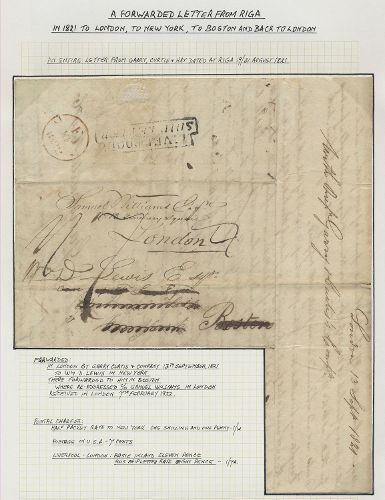 A FORWARDED LETTER FROM RIGA
IN 1821 TO LONDON, TO NEW YORK, TO BOSTON AND BACK TO LONDON
AN ENTIRE LETTER FROM GARRY, CURTIS & HAY DATED AT RIGA /31 AUGUST 1821.
LIVERPOOL
SHIP LETTER
Samuel Williams Esqr
London
Wm D Lewis Esqr
Boston
London 13 Sept 1821
FORWARDED
IN LONDON BY GARRY CURTIS & COMPANY 13TH SEPTEMBER, 1821
TO WM D LEWIS IN NEW YORK
THERE FORWARDED TO HIM IN BOSTON
WHERE RE-ADDRESSED C/O SAMUEL WILLIAMS IN LONDON
RECEIVED IN LONDON 7TH FEBRUARY 1822
POSTAL CHARGES:
HALF PACKET RATE TO NEW YORK ONE SHILLING AND ONE PENNY - 1/1d
POSTAGE IN U.S.A - CENTS
LIVERPOOL - LONDON: BASIC INLAND ELEVEN PENCE
PLUS SHIP LETTER RATE EIGHT PENCE - 1/7d.